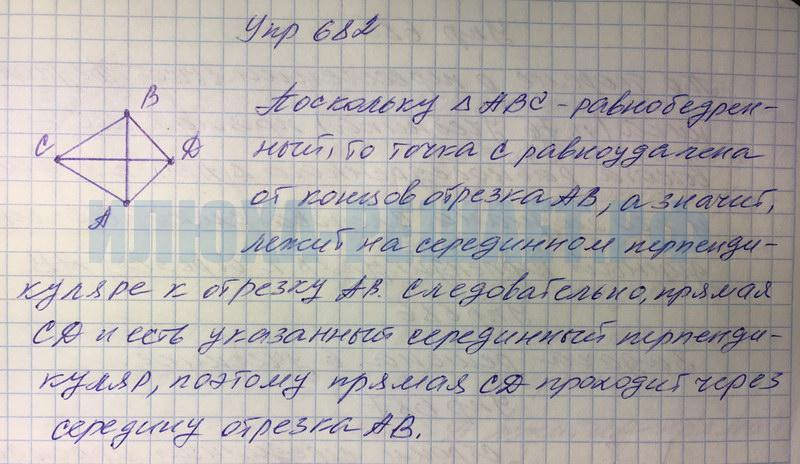 Упр 682
B
C
D
A
Поскольку △ABC - равнобедрен-
ный, то точка C равноудалена
от концов отрезка AB, а значит,
лежит на серединном перпенди-
куляре к отрезку AB. Следовательно, прямая
CD и есть указанный серединный перпенди-
куляр, поэтому прямая CD проходит через
середину отрезка AB.